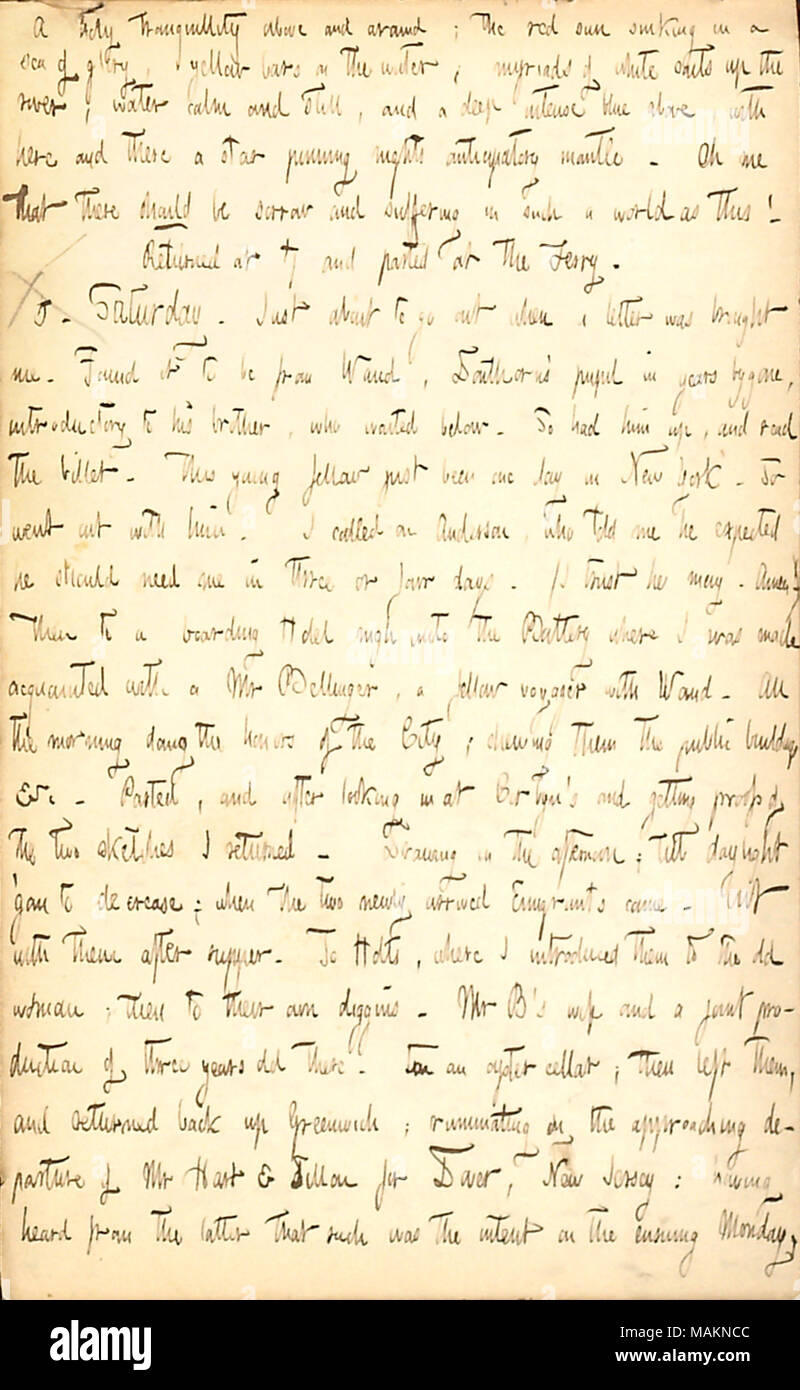 A holy tranquillity above and around ; the red sun sinking in a
sea of glory, yellow bars on the water ; myriads of white sails up the
river ; water calm and still, and a deep intense blue above, with
here and there a star pinning nights anticipatory mantle - Oh me
that there should be sorrow and suffering in such a world as this !
Returned at 7 and parted at the Ferry.
5 - Saturday. Just about to go out when a letter was brought
me. Found it to be from Waud, Douthorn's pupil in years bygone,
introductory to his brother, who waited below. So had him up, and read
the billet - This young fellow just been one day in New York - So
went out with him. I called on Anderson, who told me he expected
he should need me in three or four days. (I trust he may. Amen!)
Then to a boarding Hotel nigh unto the Battery where I was made
acquainted with a Mr Bellinger, a fellow voyager with Waud - All
the morning doing the honors of the City ; shewing them the public buildings
&c - Parted, and after looking in at and getting proofs of
the two sketches I returned - Drawing in the afternoon ; till daylight
'gan to decrease ; when the two newly arrived Emigrants came - Out
with them after supper. To Holts, where I introduced them to the old
woman ; then to their own diggins - Mr B's wife and a joint pro-
duction of three years old there. To an oyster cellar ; then left them,
and returned back up Greenwich ; ruminating on the approaching de-
parture of Mr Hart & Dillon for Dover, New Jersey : having
heard from the latter that such was the intent on the ensuing Monday,
alamy
Image ID: MAKNCC
www.alamy.com